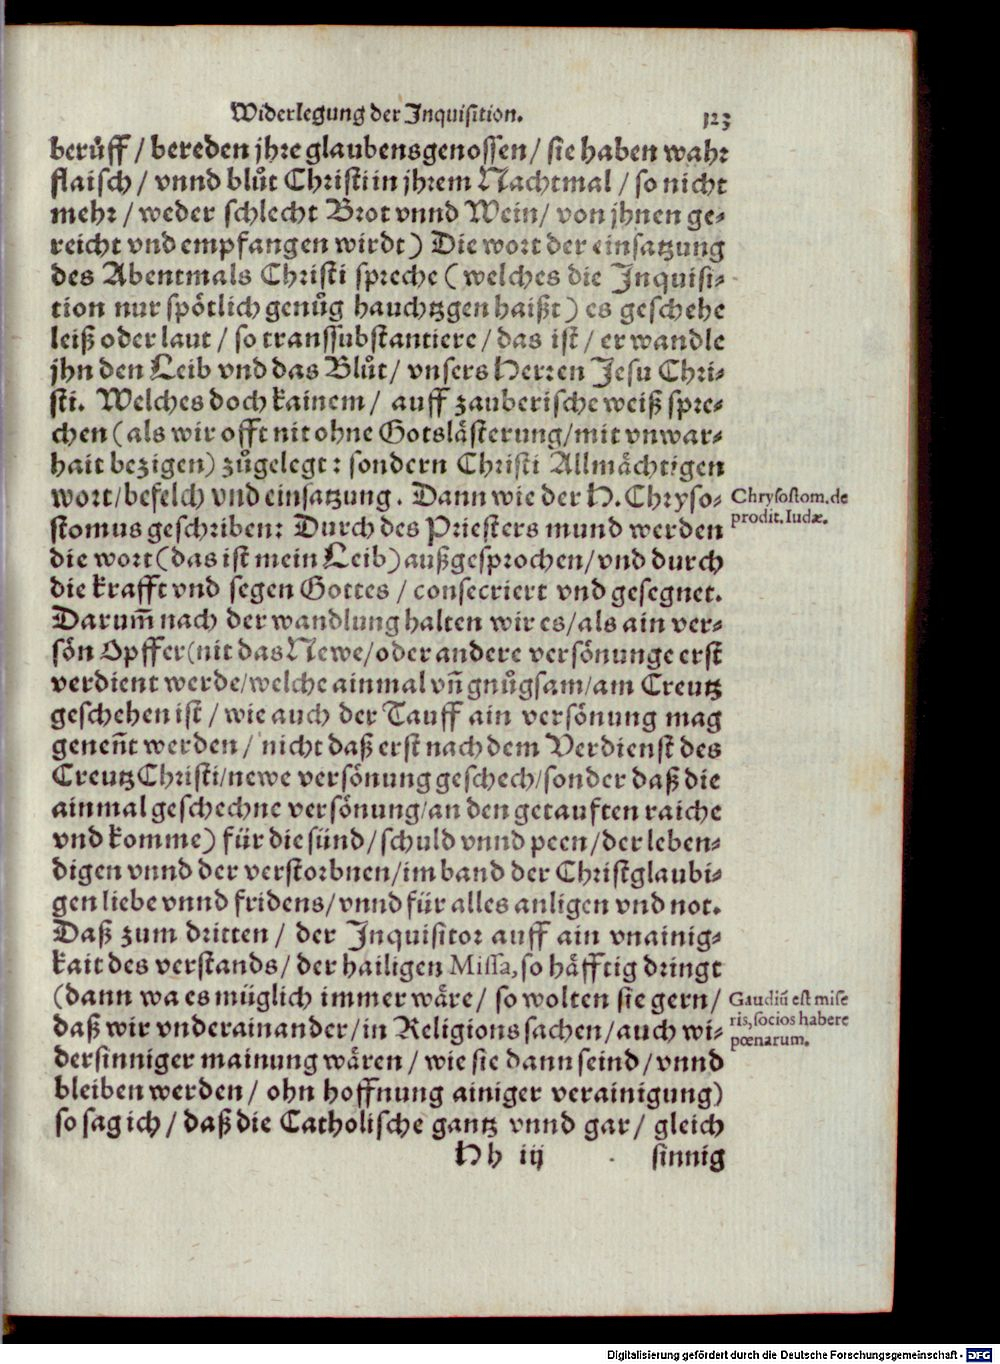 Widerlegung der Inquisition. 123
berůff / bereden jhre glaubensgenossen / sie haben wahr
flaisch / vnnd blůt Christi in jhrem Nachtmal / so nicht
mehr / weder schlecht Brot vnnd Wein / von jhnen ge⸗
reicht vnd empfangen wirdt) Die wort der einsatzung
des Abentmals Christi spreche (welches die Inquisi⸗
tion nur spötlich genůg hauchtzgen haißt) es geschehe
leiß oder laut / so transsubstantiere / das ist / er wandle
jhn den Leib vnd das Blůt / vnsers Herren Jesu Chri⸗
sti. Welches doch kainem / auff zauberische weiß spre⸗
chen (als wir offt nit ohne Gotslästerung / mit vnwar⸗
hait bezigen) zůgelegt: sondern Christi Allmächtigen
wort / befelch vnd einsatzung. Dann wie der H. Chryso⸗
Chrysostom. de
prodit. Iudæ.
stomus geschriben: Durch des Priesters mund werden
die wort (das ist mein Leib) außgesprochen / vnd durch
die krafft vnd segen Gottes / consecriert vnd gesegnet.
Darum̃ nach der wandlung halten wir es / als ain ver⸗
sön Opffer (nit das Newe / oder andere versönunge erst
verdient werde / welche ainmal vñ gnůgsam / am Creutz
geschehen ist / wie auch der Tauff ain versönung mag
geneñt werden / nicht daß erst nach dem Verdienst des
Creutz Christi / newe versönung geschech / sonder daß die
ainmal geschechne versönung / an den getauften raiche
vnd komme) für die sünd / schuld vnnd peen / der leben⸗
digen vnnd der verstorbnen / im band der Christglaubi⸗
gen liebe vnnd fridens / vnnd für alles anligen vnd not.
Daß zum dritten / der Inquisitor auff ain vnainig⸗
kait des verstands / der hailigen Missa, so häfftig dringt
(dann wa es müglich immer wäre / so wolten sie gern /
Gaudiũ est mise
ris, socios habere
pœnarum.
daß wir vnderainander / in Religions sachen / auch wi⸗
dersinniger mainung wären / wie sie dann seind / vnnd
bleiben werden / ohn hoffnung ainiger verainigung)
so sag ich / daß die Catholische gantz vnnd gar / gleich
Hh iij sinnig
Digitalisierung gefördert durch die Deutsche Forschungsgemeinschaft - DFG